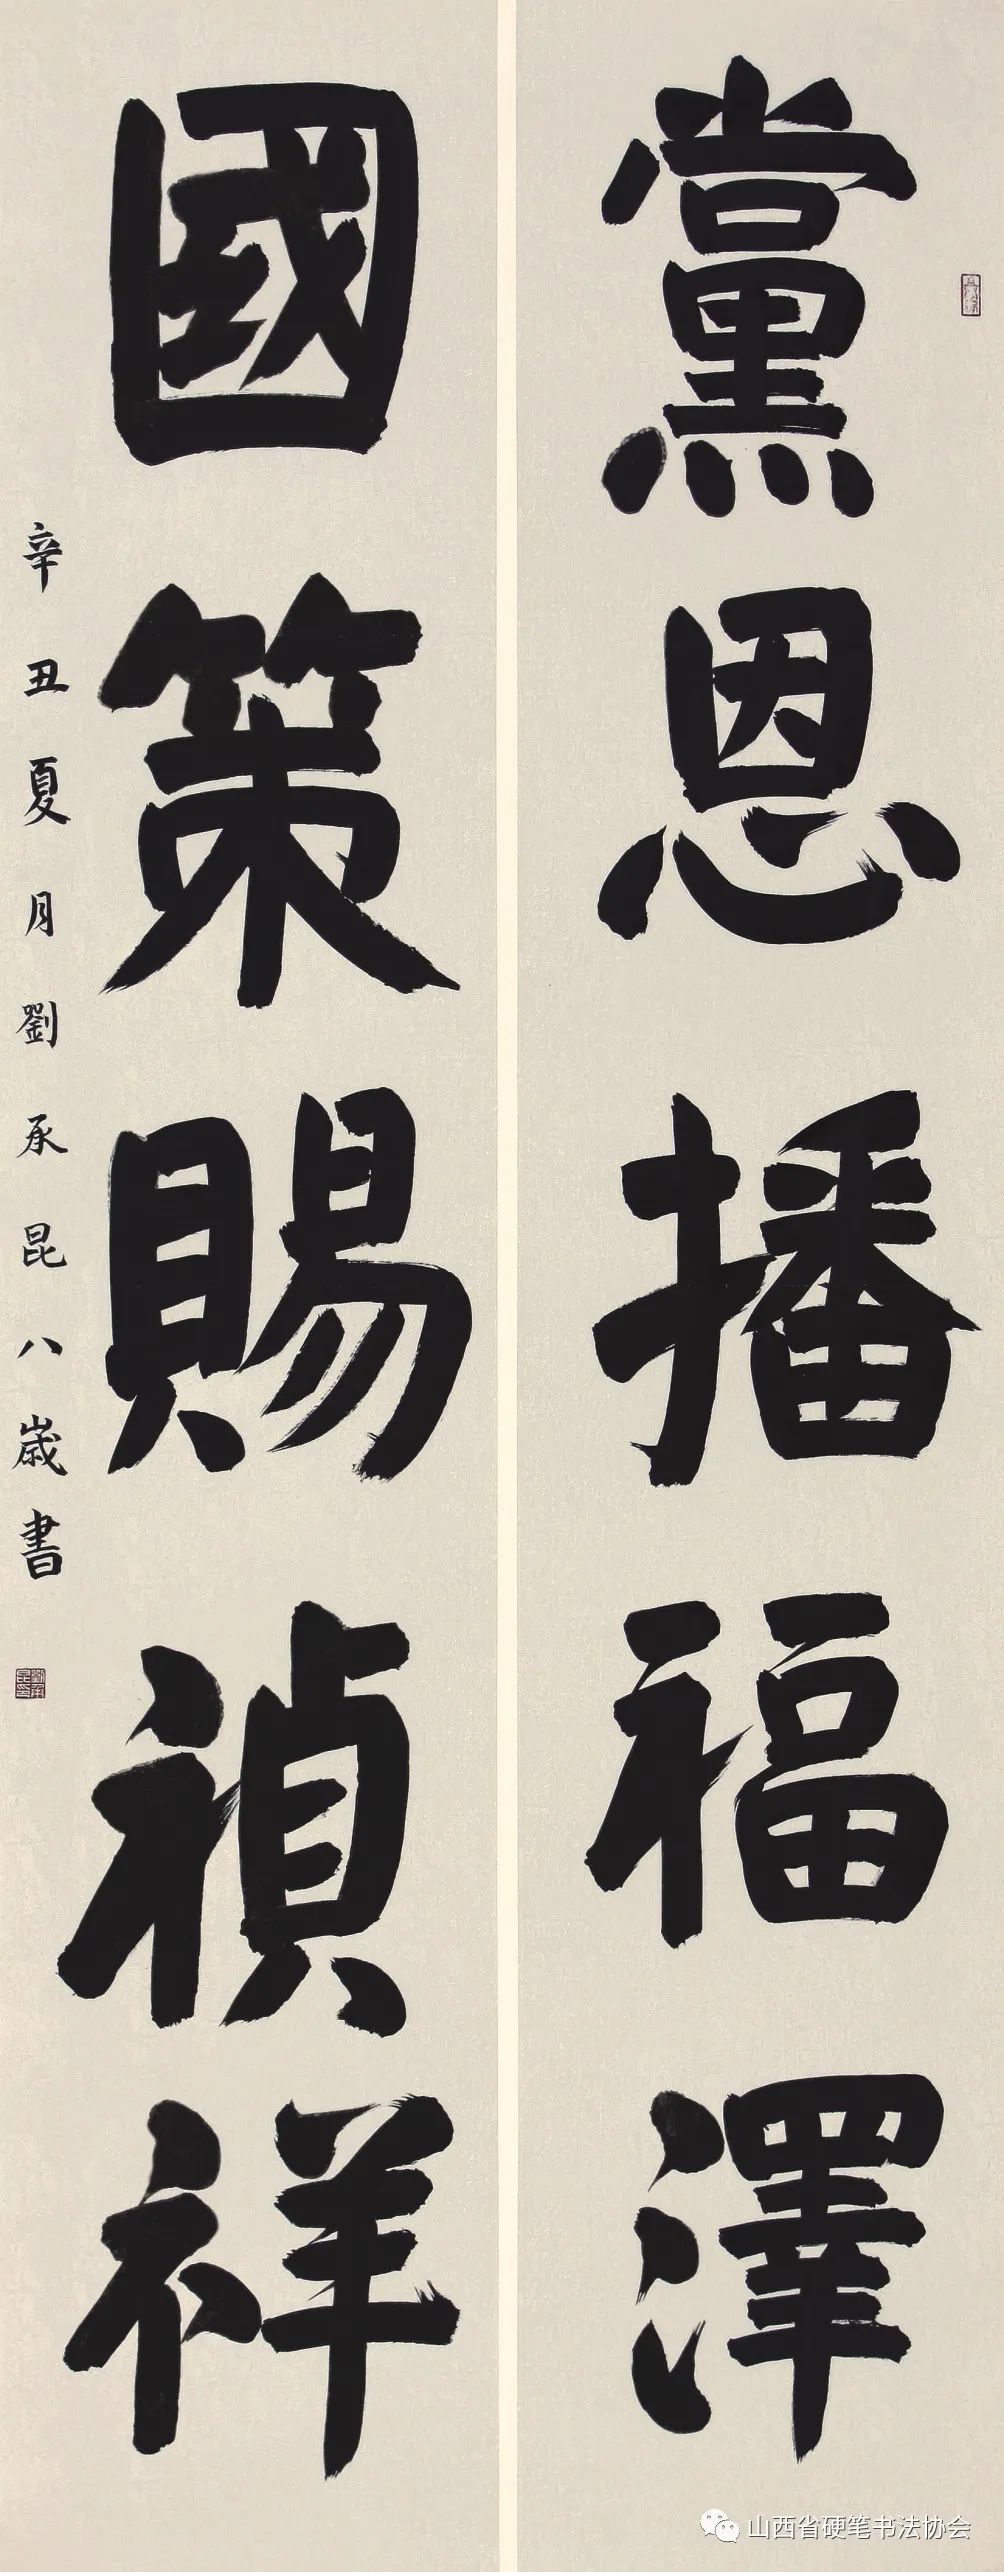 黨恩播福澤
國策賜禎祥
辛丑夏月劉承昆八歲書
山西省硬笔书法协会